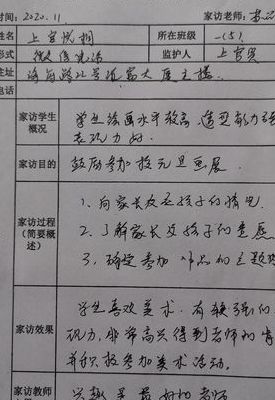 时间：2020.11 家访老师：
姓名 上官悦桐 所在班级 一（5）
形式 微信电话 监护人 上官
住址
电话
家访学生概况 学生绘画水平较高，造型能力强
表现力好
家访目的 鼓励参加校元旦画展
家访过程（简要概述） 1、向家长反应孩子的情况
2、了解家长及孩子的意愿
3、确定参加作品的主题
家访效果 学生喜欢美术，有较强的
现力，非常高兴得到老师的肯
并积极参加美术活动。
家访教师 兴趣是最好的老师